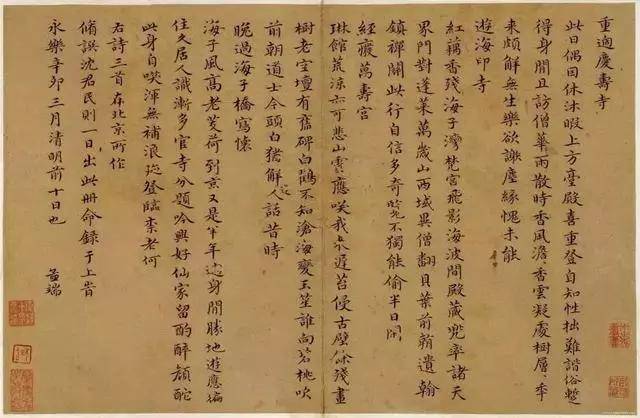 重過慶壽寺
此日偶因休沐暇上方臺殿喜重登自知性拙難諧俗暫
得身閒且訪僧華雨散時香風澹香雲凝處樹層〻年
來頗解無生樂欲謝塵緣愧未能
遊海印寺
紅藕香殘海子灣梵宮飛影海波間殿藏兜率諸天
界門對蓬萊萬歲山西域異僧翻貝葉前朝遺翰
鎮禪關此行自信多奇不獨能偷半日閒
經廢萬壽宮
琳館荒涼亦可悲山雲應笑我來遲苔侵古壁餘殘畫
樹老空壇有舊碑白鶴不知滄海變玉笙誰向碧桃吹
前朝道士今頭白猶解人話昔時
晚過海子橋寫懷
海子風高老芰荷到京又是半年過身閒勝地遊應遍
住久居人識漸多官寺分題吟興好仙家留酌醉顏酡
此身自笑渾無補浪跡登臨柰老何
右詩三首在北京所作
沈君民則一日出此冊命錄于上旹
永樂辛卯三月清明前十日也 孟端